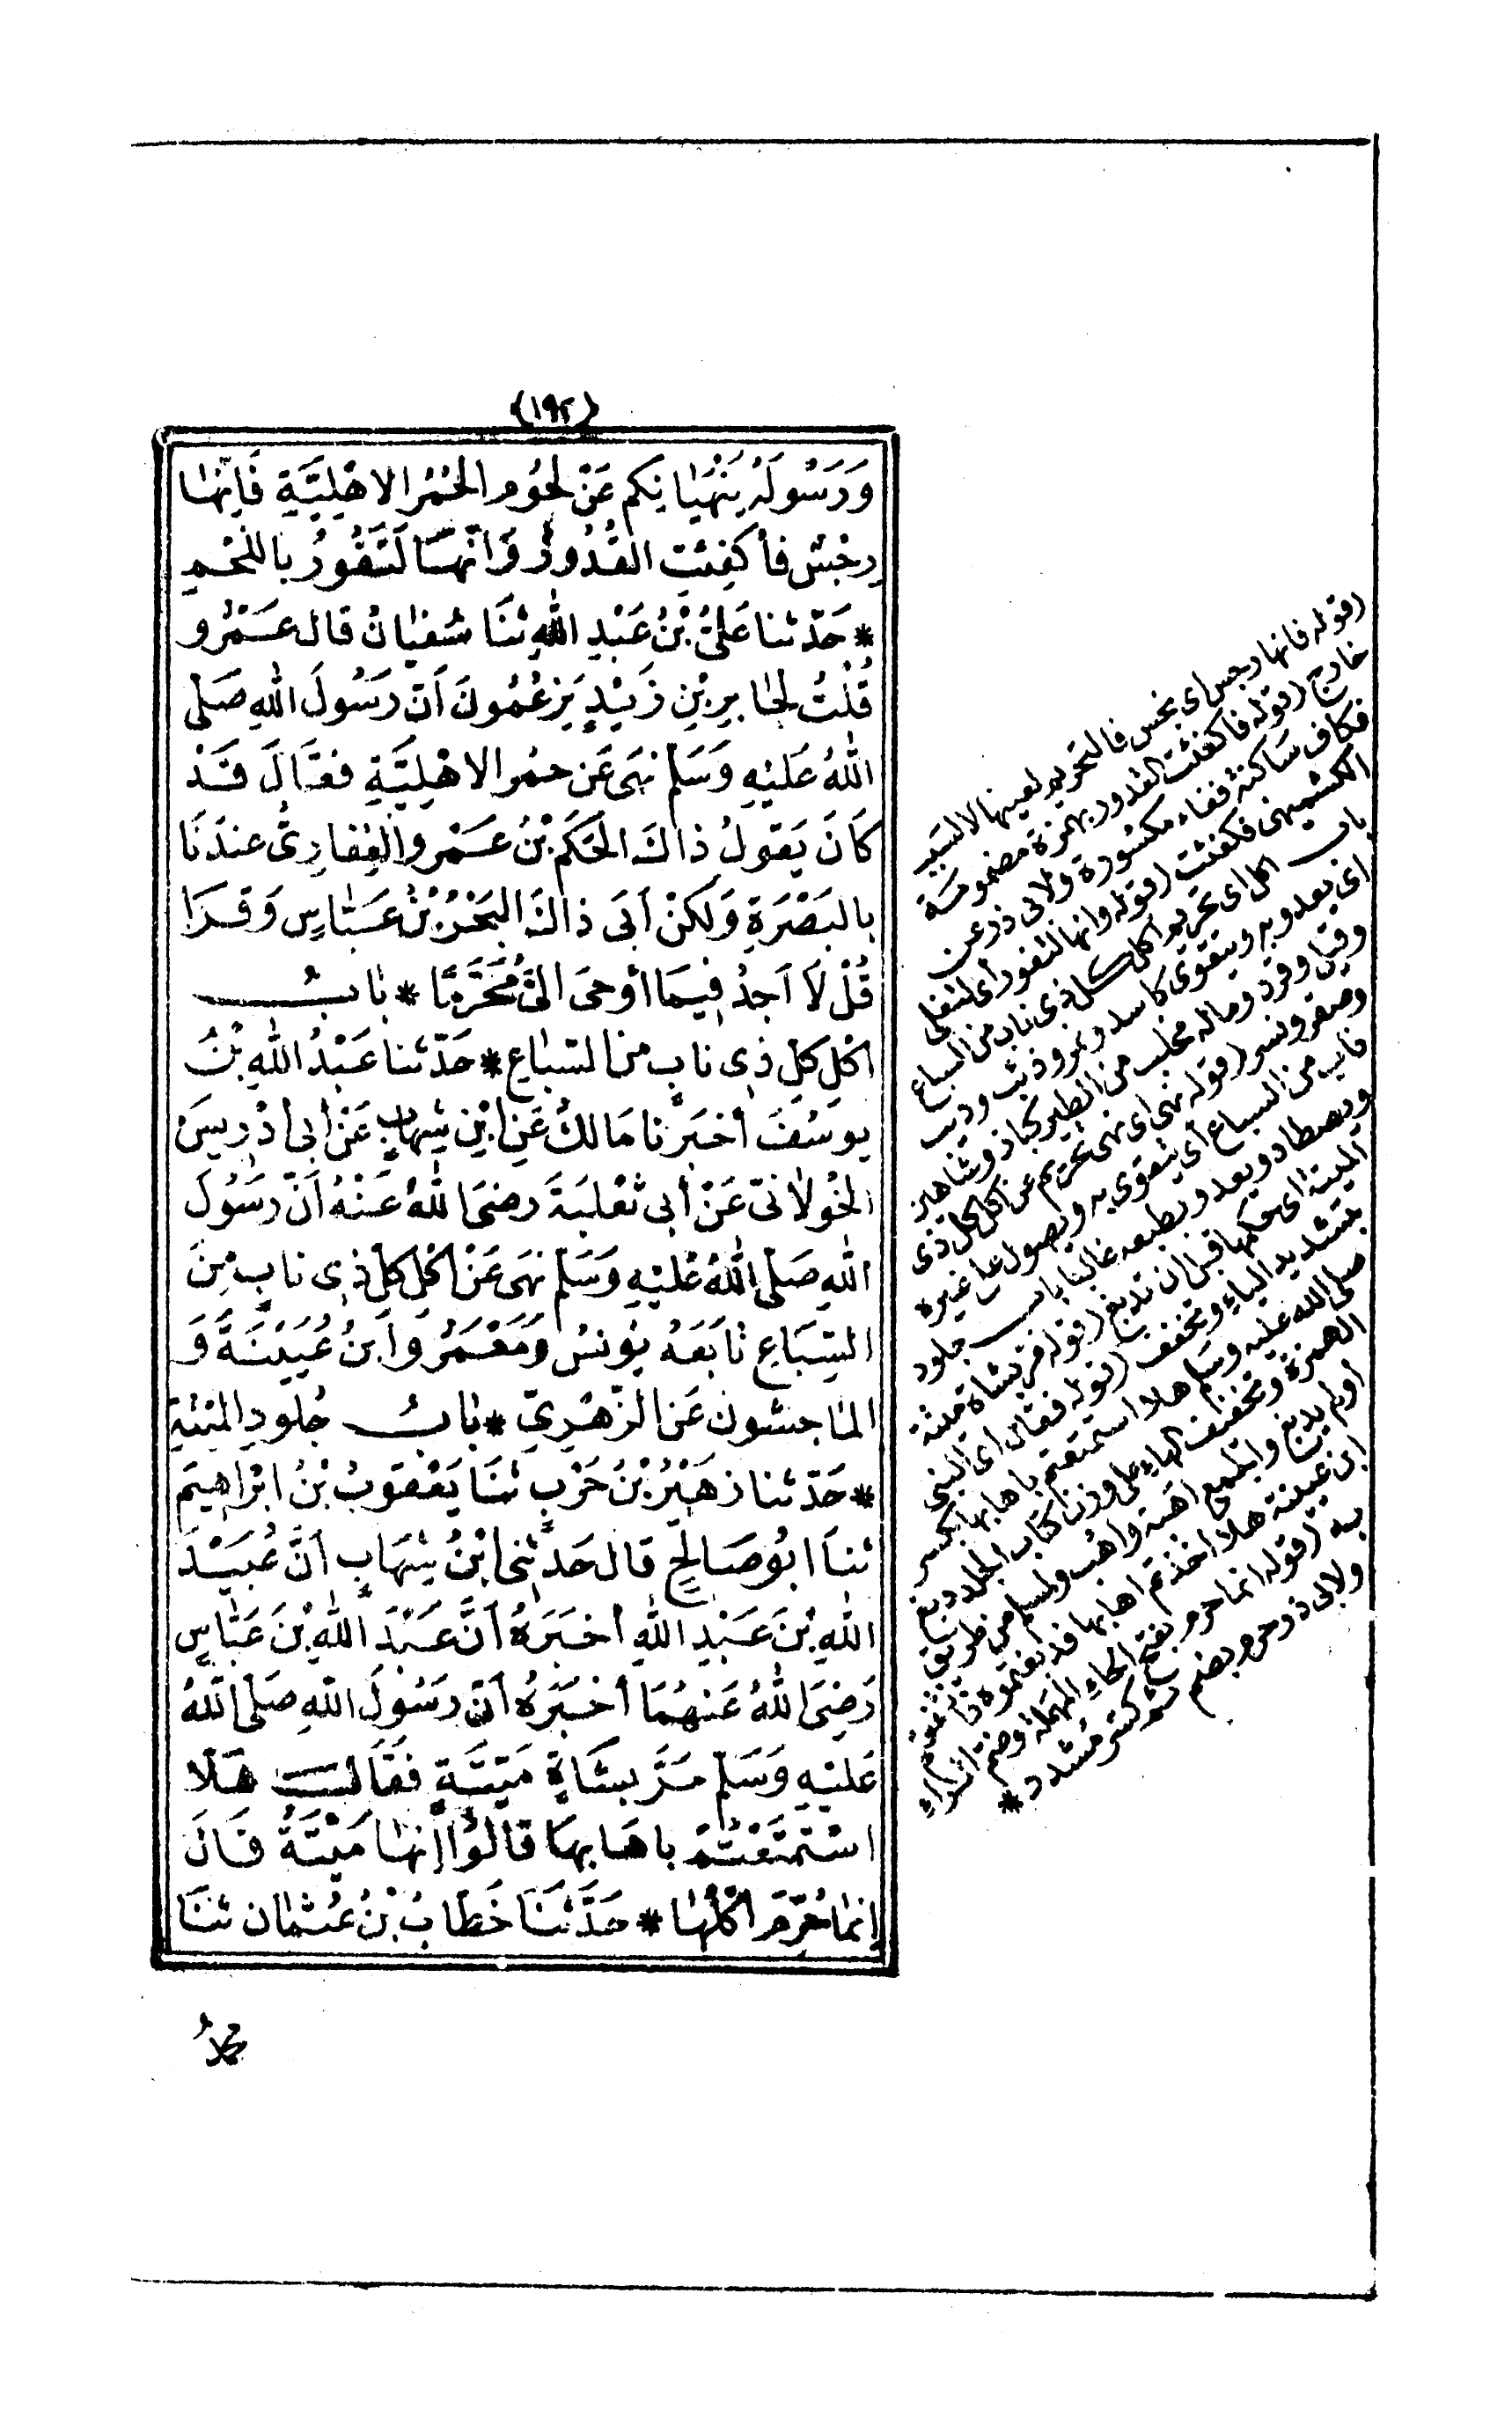 (١٩٢)
وَرَسُولَهُ يَنْهَيَانِكم عَنْ لحُوم الحُمُر الاهْلِيَّةِ فَاِنهَا
رِجْسٌ فأكفِئتِ القُدُورُ وَانّهَا لَتَفُورُ باللحْمِ
* حَدّثنا عَلِىُّ بْنُ عَبْدِ اللهِ ثنَا سُفيَانُ قال عَمْرُو
قُلْتُ لجَابِرِ بْنِ زَيْدٍ يَزعُمُونَ اَنّ رَسُولَ اللهِ صَلى
اللهُ عَليْهِ وَسَلم نهَى عَن حمُر الاهْلِيَّةِ فقَالَ قَدْ
كَانَ يَقولُ ذاكَ الحَكمُ بْنُ عَمْرٍو الغِفارِىُّ عندَنَا
بالبَصْرَةِ وَلَكنْ أبَى ذاكَ البَحْرُ بْنُ عَبّاسٍ وَقرَا
قُلْ لاَ اَجدُ فِيمَا أوحىَ الىَّ مُحَرَّمًا * بابُ
اكْلِ كلِ ذِى نابٍ من السّبَاعِ * حَدّثنا عَبْدُ اللهِ بْنُ
يوسُفَ أخبَرنا مَالكٌ عَنِ ابْنِ شِهَابٍ عَنْ أبى ادْرِيسَ
الخُولانىّ عَنْ أبى ثعْلبَةَ رضىَ اللهُ عَنْهُ اَنّ رسُولَ
اللهِ صَلى اللهُ عَليْهِ وَسَلم نهَى عَنْ اكْلِ كلِ ذِى نابٍ مِنَ
السِّبَاعِ تابَعَهُ يُونسُ وَمَعْمَرٌ وَابنُ عُيَيْنَةَ وَ
الماجشون عَن الزّهْرِىّ * بابُ جُلودِ الميْتةِ
* حَدّثنا زهَيْرُ بْنُ حَرْبٍ ثنَا يَعْقوبُ بْنُ ابْراهِيمَ
ثنَا ابُو صَالحٍ قال حَدثنِى ابْنُ شِهَابٍ اَنَّ عُبَيْدَ
اللهِ بْنَ عَبْدِ اللهِ أخبَرَهُ اَنَّ عَبْدَ اللهِ بْنَ عَبّاسٍ
رَضِىَ اللهُ عَنهُمَا أخبَرَهُ اَنّ رَسُولَ اللهِ صَلى اللهُ
عَليْهِ وَسَلم مَرَّ بشَاةٍ مَيّتَةٍ فقَالَ هَلا
اسْتَمْتَعْتُمْ باهَابهَا قالُوْا إنهَا مَيْتَةٌ قَالَ
إنمَا حُرِّمَ اكْلُهَا * حَدَّثنَا خَطَابُ بْنُ عُثمَان ثنَا
محمدُ
(قوله فانها رجس اى نجس فالتحريم لعينها لا لسبب
خارج (قوله فاكفئت القدور بهمزة مضمومة
فكاف ساكنة ففاء مكسورة ولابى ذر عن
الكشميهنى فكفئت (قوله وانها لتفور اى لتغلى
باب اكل اى تحريم اكل كل ذى ناب من السباع
اى يعدو به ويتقوى كاسد ونمر وذئب ودب
وفيل وقرد وماله مخلب من الطير كباز وشاهين
وصقر ونسر (قوله نهى اى نهى تحريم عن اكل كل ذى
ناب من السباع اى يتقوى به ويصول على غيره
ويصطاد ويعدو بطبعه غالبا باب جلود
الميتة اى حكمها قبل ان تدبغ (قوله مر بشاة ميتة
بتشديد الياء وتخفف (قوله فقال اى النبى
صلى الله عليه وسلم هلا استمتعتم باهابها بكسر
الهمزة وتخفيف الهاء على وزن كتاب الجلد دبغ
اولم يدبغ والجمع اهبة واهب ولمسلم من طريق
ابن عيينة هلا اخذتم اهابها فدبغتموه فانتفعتم
به (قوله انما حرم بفتح الحاء المهملة وضم الراء
ولابى ذر حرم بضم ثم كسر مشدد *